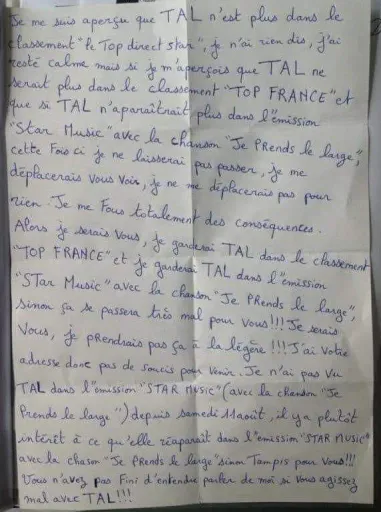 Je me suis aperçu que TAL n'est plus dans le
classement "le Top direct star", je n'ai rien dis, j'ai
resté calme mais si je m'aperçois que TAL ne
serait plus dans le classement "TOP FRANCE" et
que si TAL n'aparaîtrait plus dans l'émission
"Star Music" avec la chanson "Je Prends le large",
cette Fois ci je ne laisserai pas passer, je me
déplacerais vous voir, je ne me déplacerais pas pour
rien. Je me Fous totalement des conséquences.
Alors je serais vous, je garderai TAL dans le classement
"TOP FRANCE" et je garderai TAL dans l'émission
"STar Music" avec la chanson "Je PRends le large",
sinon ça se passera très mal pour vous!!! Je serais
Vous, je prendrais pas ça à la légère !!! J'ai votre
adresse donc pas de soucis pour venir. Je n'ai pas vu
TAL dans l'émission "STAR MUSIC" (avec la chanson "Je
Prends le large") depuis samedi 11 août, il y a plutôt
intérêt à ce qu'elle réaparaît dans l'émission "STAR MUSIC"
avec la chason "Je PRends le large" sinon Tampis pour Vous!!!
Vous n'avez pas Fini d'entendre parler de moi si vous agissez
mal avec TAL!!!